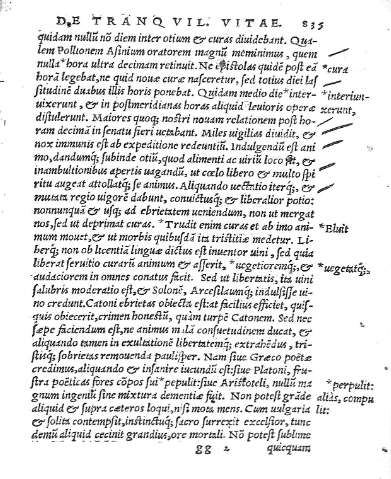 DE TRANQVIL. VITAE. 835
quidam nullū nō diem inter otium & curas diuidebant. Qua-
lem Pollionem Asinium oratorem magnū meminimus, quem
nulla *hora ultra decimam retinuit. Ne epistolas quidē post eā *cura
horā legebat, ne quid nouæ curæ nasceretur, sed totius diei las
situdinē duabus illis horis ponebat. Quidam medio die *inter- *interiun-
uixerunt, & in postmeridianas horas aliquid leuioris operæ xerunt,
distulerunt. Maiores quoq; nostri nouam relationem post ho-
ram decimā in senatu fieri uetabant. Miles uigilias diuidit, &
nox immunis est ab expeditione redeuntiū. Indulgendū est ani
mo, dandumq; subinde otiū, quod alimenti ac uiriū loco sit, &
inambulationibus apertis uagandū, ut cœlo libero & multo spi
ritu augeat attollatq; se animus. Aliquando uectatio iterq;, &
mutata regio uigorē dabunt, conuictusq; & liberalior potio:
nonnunquā & usq; ad ebrietatem ueniendum, non ut mergat
nos, sed ut deprimat curas. *Trudit enim curas et ab imo ani- *Eluit
mum mouet, & ut morbis quibusdā ita tristitiæ medetur. Li-
berq; non ob licentiā linguæ dictus est inuentor uini, sed quia
liberat seruitio curarū animum & asserit, *uegetioremq;, & *uegetatq;,
audaciorem in omnes conatus facit. Sed ut libertatis, ita uini
salubris moderatio est, & Solonē, Arcesilaumq; indulsisse ui-
no credunt. Catoni ebrietas obiecta est: at facilius efficiet, quis-
quis obiecerit, crimen honestū, quàm turpē Catonem. Sed nec
sæpe faciendum est, ne animus malā consuetudinem ducat, &
aliquando tamen in exultationē libertatemq; extrahēdus, tri-
stisq; sobrietas remouenda paulisper. Nam siue Græco poëtæ
credimus, aliquando & insanire iucundū est: siue Platoni, fru-
stra poëticas fores cōpos sui *pepulit: siue Aristoteli, nullū ma *perpulit:
gnum ingeniū sine mixtura dementiæ fuit. Non potest grāde aliàs, compu
aliquid & supra cæteros loqui, nisi mota mens. Cum uulgaria lit:
& solita contempsit, instinctuq; sacro surrexit excelsior, tunc
demū aliquid cecinit grandius, ore mortali. Nō potest sublime
gg 2 quicquam